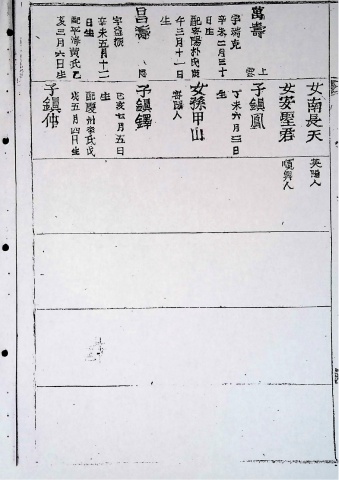 萬壽
上
雲
字瑞克
辛未二月三十
日生
配密陽朴氏
午三月十一日
生
昌壽
字益振
辛未五月十二
日生
配平海黃氏乙
亥三月六日生
女南長天
英陽人
女安聖君
順興人
子鎭鳳
丁未六月三日
生
女孫甲山
密陽人
子鎭鐸
己亥七月五日
生
配慶州李氏戊
戌五月四日生
子鎭仲